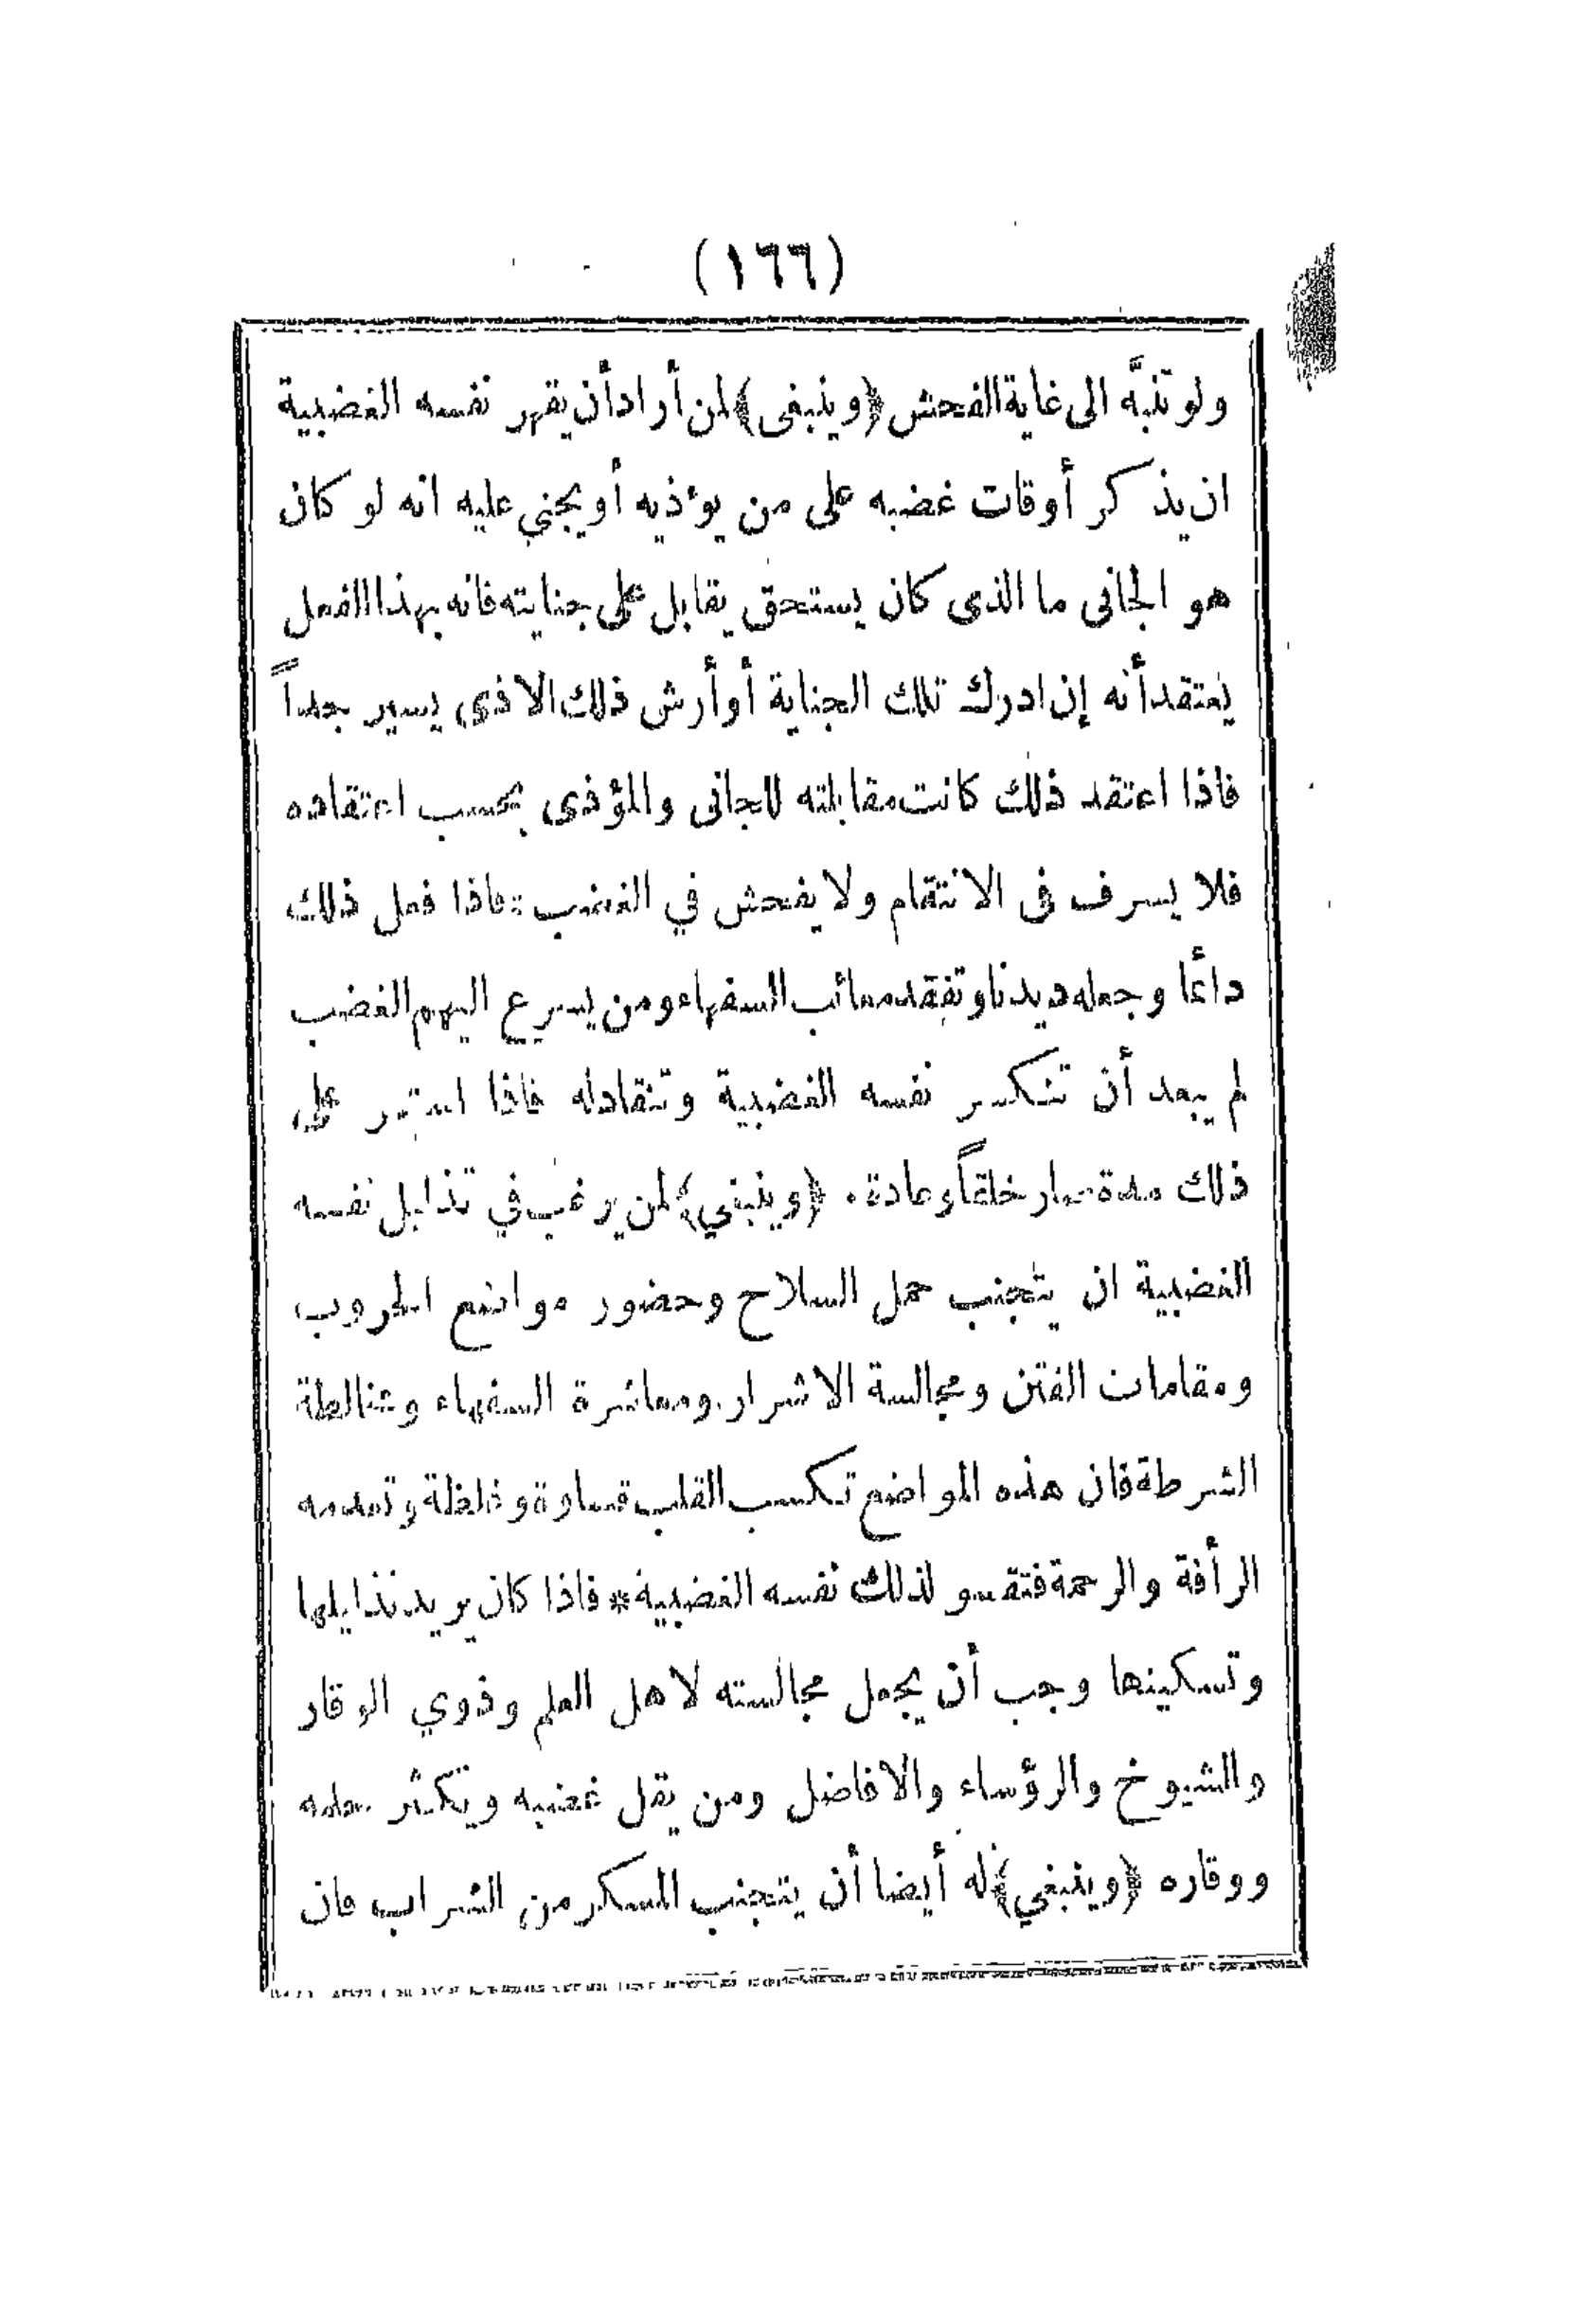 (١٦٦)
ولو تنبَّه الى غاية الفحش ﴿وينبغى﴾ لمن أراد أن يقهر نفسه الغضبية
ان يذكر أوقات غضبه على من يؤذيه أو يجني عليه انه لو كان
هو الجانى ما الذى كان يستحق يقابل على جنايته فانه بهذا الفعل
يعتقد أنه إن ادرك تلك الجناية أو أرش ذلك الاذى يسير جداً
فاذا اعتقد ذلك كانت مقابلته للجانى والمؤذى بحسب اعتقاده
فلا يسرف فى الانتقام ولا يفحش في الغضب : فاذا فعل ذلك
دائما وجعله ديدنا وتفقد معائب السفهاء ومن يسرع اليهم الغضب
لم يبعد أن تنكسر نفسه الغضبية وتنقاد له فاذا استمر على
ذلك مدة صار خلقاً وعادة . ﴿وينبغي﴾ لمن يرغب في تذليل نفسه
الغضبية ان يتجنب حمل السلاح وحضور مواضع الحروب
ومقامات الفتن ومجالسة الاشرار . ومعاشرة السفهاء ومخالطة
الشرطة فان هذه المواضع تكسب القلب قساوة وغلظة وتعدمه
الرأفة والرحمة فتقسو لذلك نفسه الغضبية * فاذا كان يريد تذليلها
وتسكينها وجب أن يجعل مجالسته لاهل العلم وذوي الوقار
والشيوخ والرؤساء والافاضل ومن يقل غضبه ويكثر حلمه
ووقاره ﴿وينبغي﴾ له أيضا أن يتجنب المسكر من الشراب فان